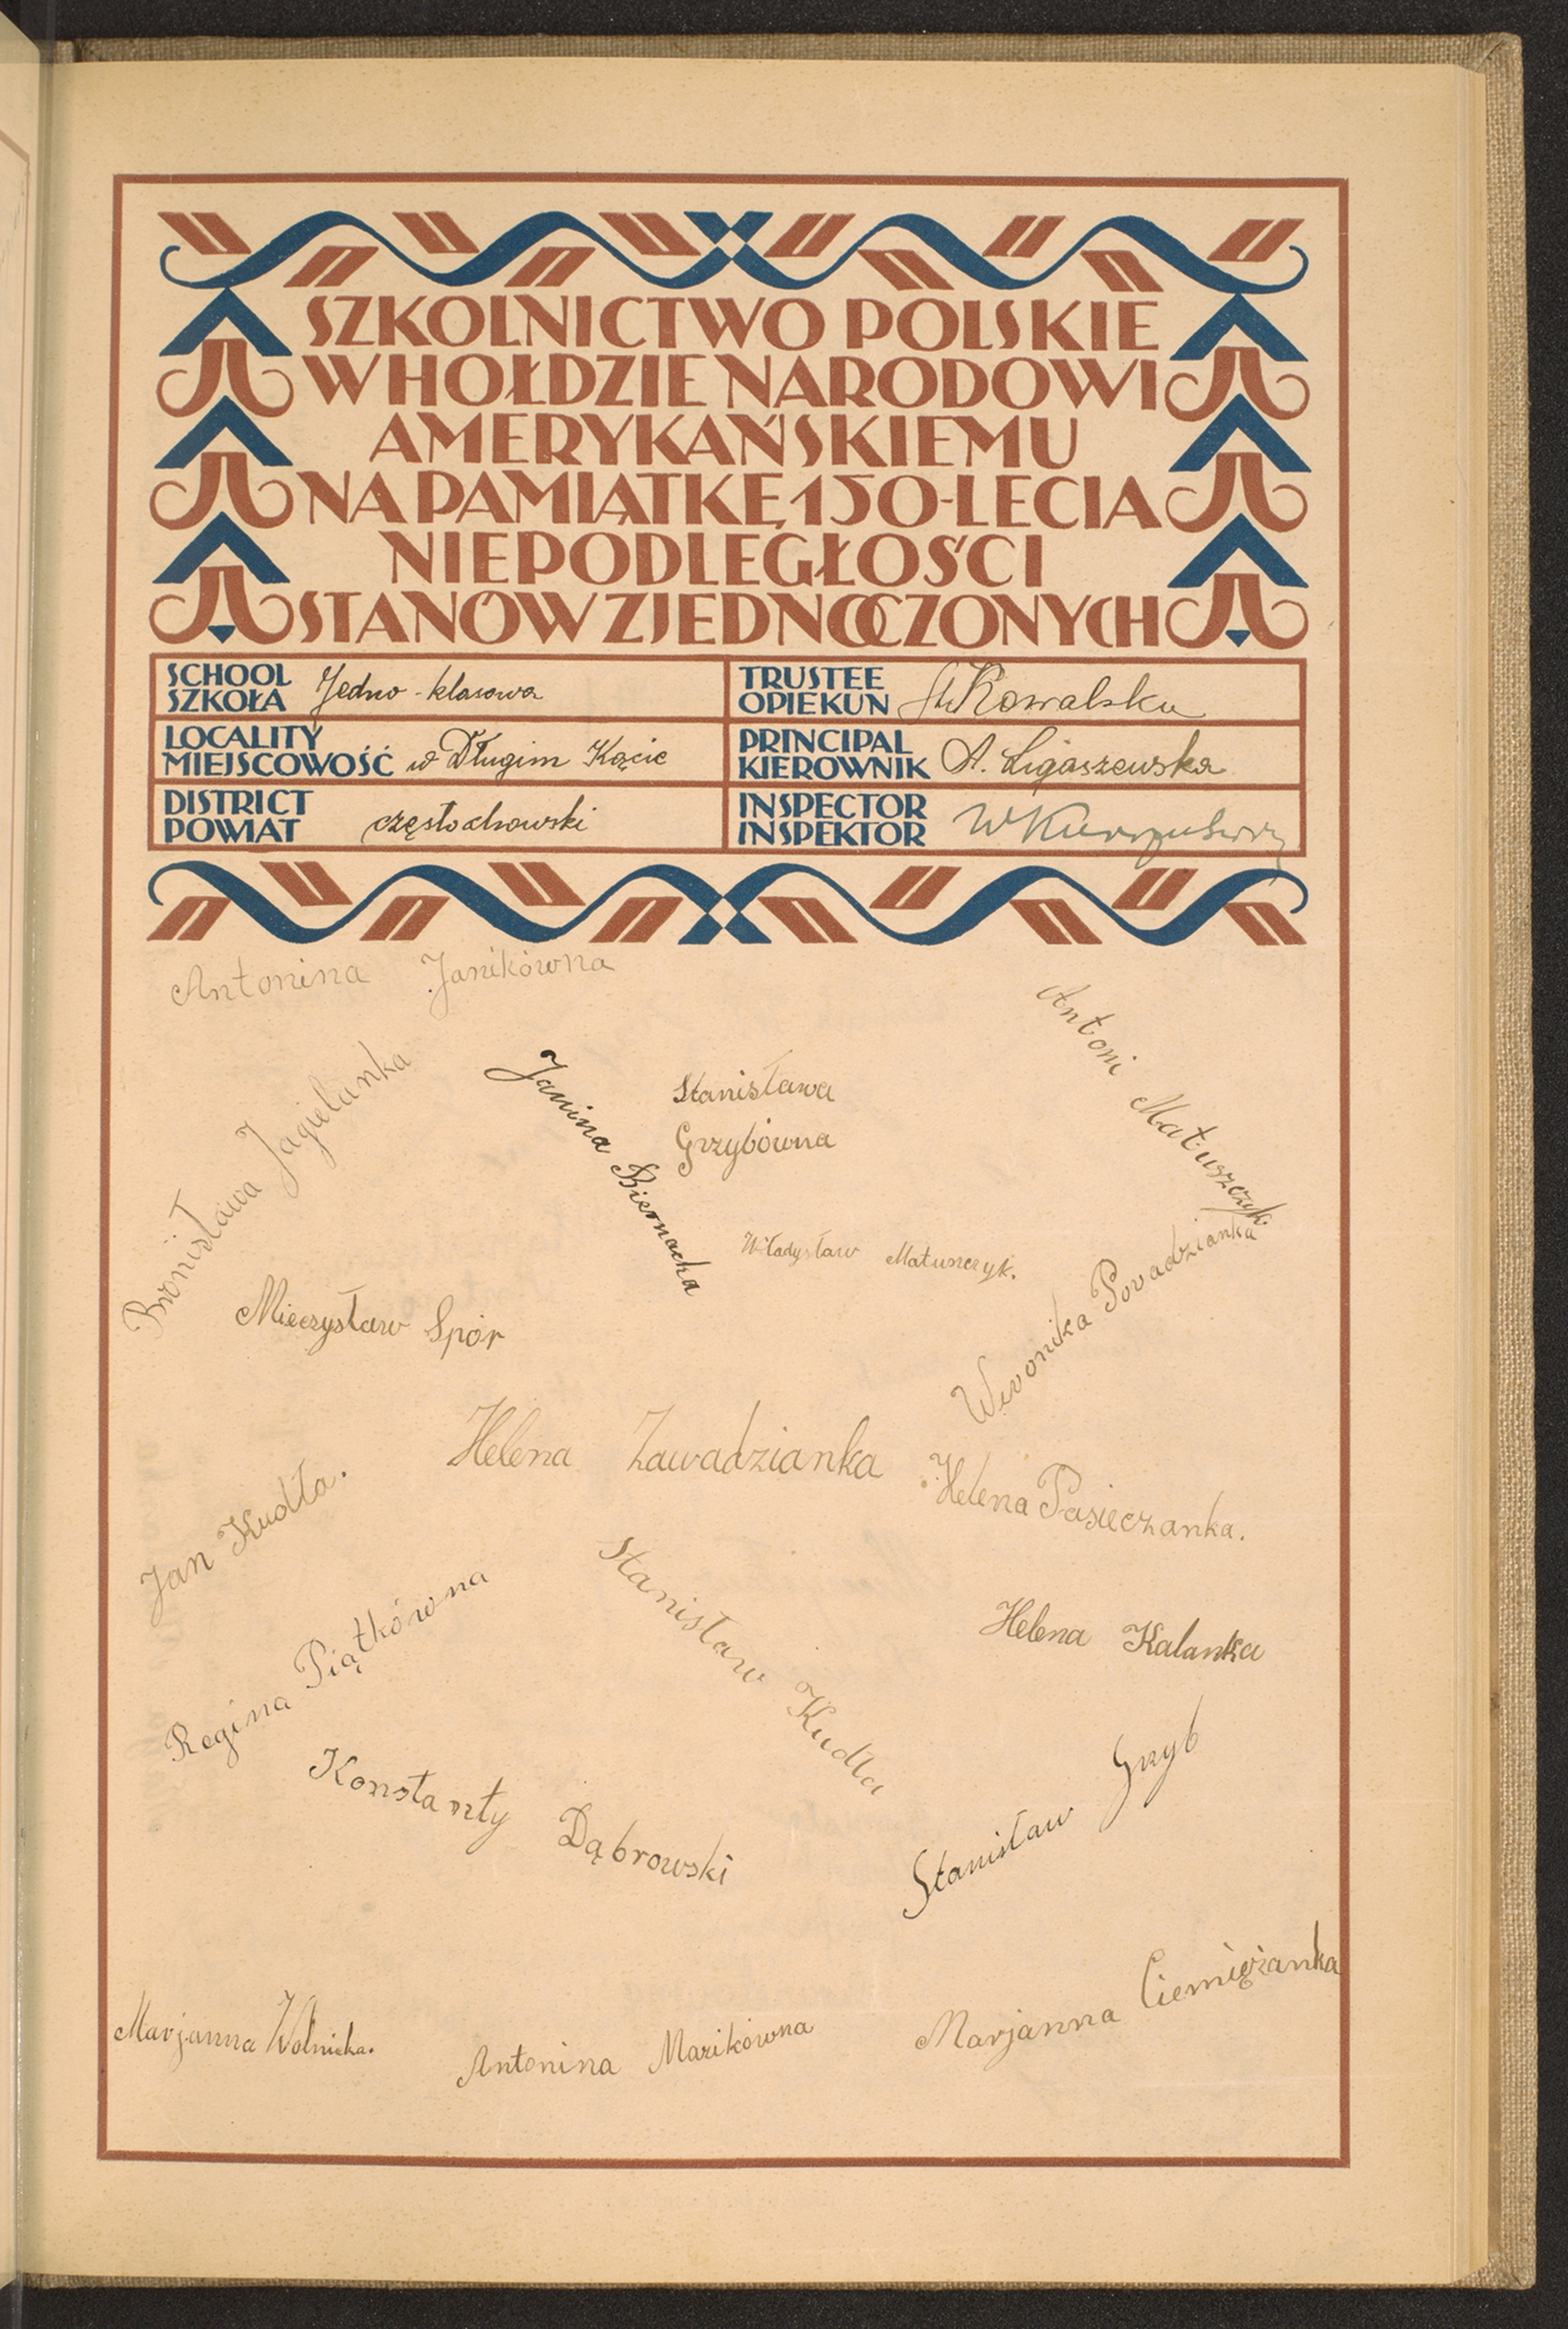 SZKOLNICTWO POLSKIE
W HOŁDZIE NARODOWI
AMERYKAŃSKIEMU
NA PAMIĄTKĘ 150-LECIA
NIEPODLEGŁOŚCI
STANÓW ZJEDNOCZONYCH
SCHOOL
SZKOŁA Jedno-klasowa
TRUSTEE
OPIEKUN Kowalska
LOCALITY
MIEJSCOWOŚĆ w Długim Kącie
PRINCIPAL
KIEROWNIK A. Ligaszewska
DISTRICT
POWIAT częstochowski
INSPECTOR
INSPEKTOR
Antonina Janikówna
Antoni Matuszczyk
Bronisława Jagielanka
Janina Biernacka
Stanisława
Grzybówna
Władysław Matuszczyk.
Weronika Powadzianka
Mieczysław Spór
Helena Zawadzianka
Helena Pasieczanka.
Jan Kudła.
Regina Piątkówna
Stanisław Kudła
Helena Kalanka
Konstanty Dąbrowski
Stanisław Grzyb
Marjanna Wolnicka.
Antonina Mazikówna
Marjanna Ciemiężanka